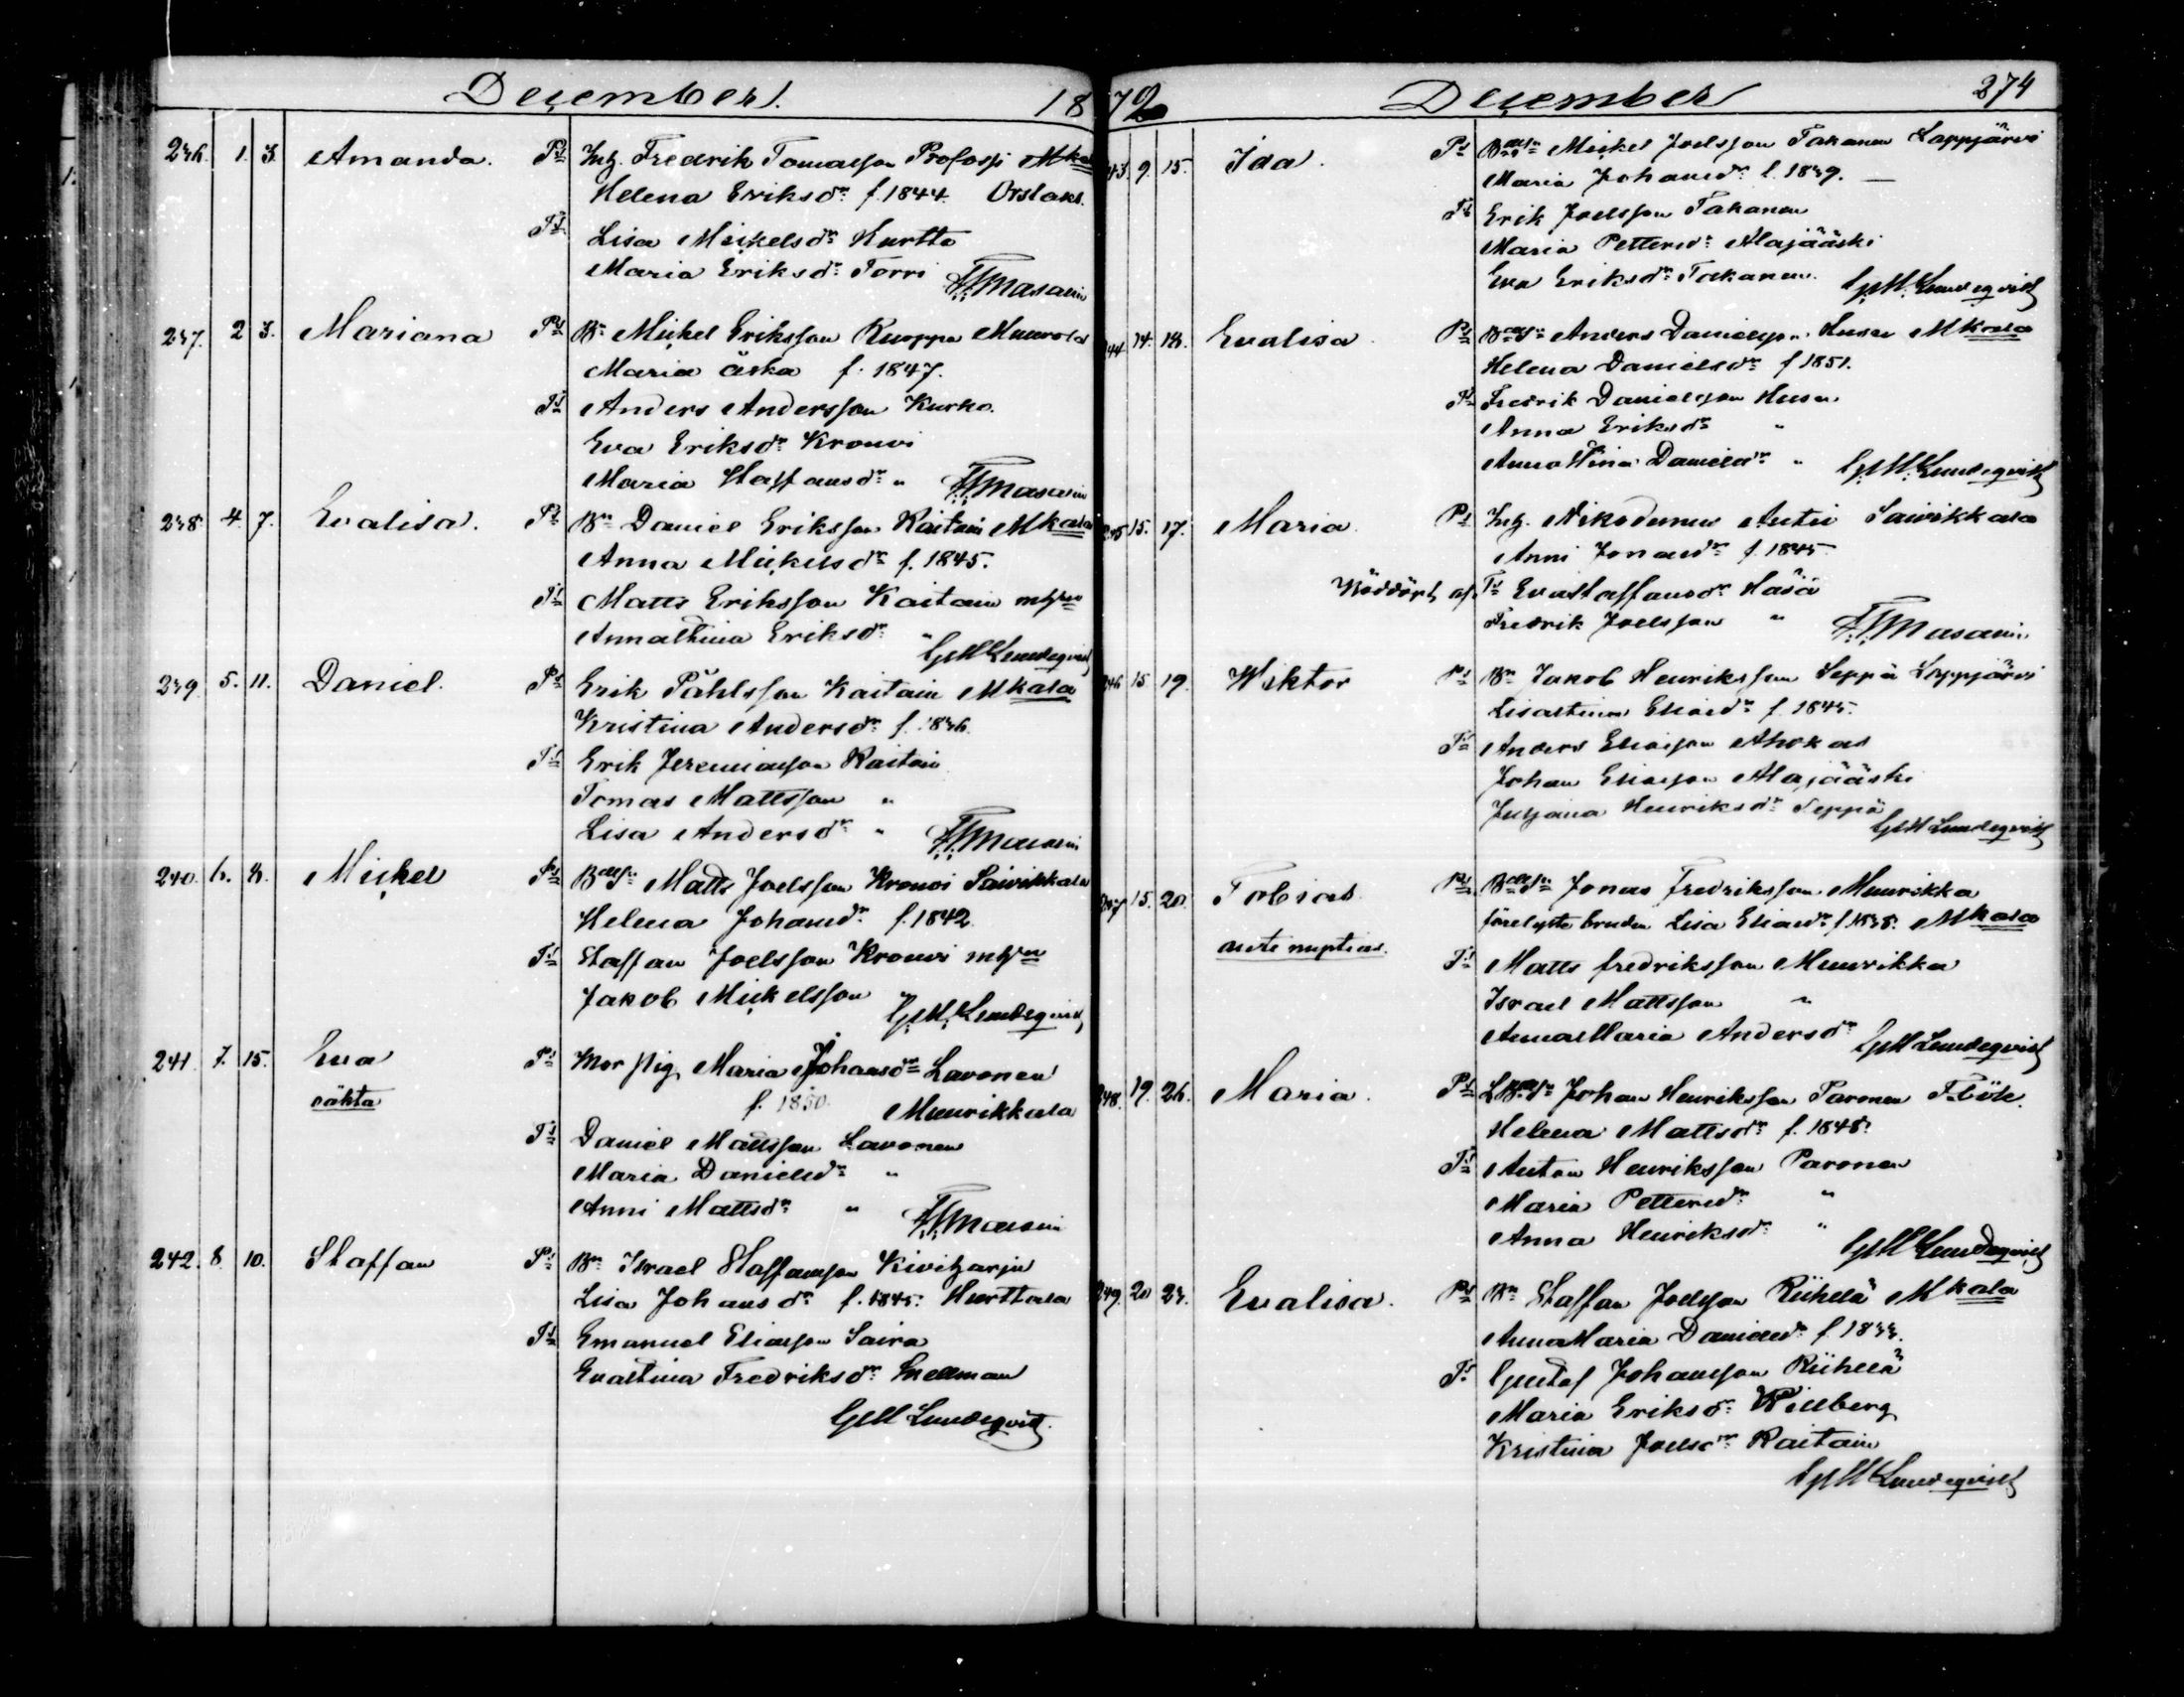 December. 1872
236. 1. 3. Amanda. Ps Inh. Fredrik Tomasson Profossi Mkala
Helena Eriksdr f. 1844. Orslaks.
Ts Lisa Mickelsdr Hurtta
Maria Eriksdr Torri
Masalin
237. 2 3. Mariana Ps Bn Mickel Eriksson Ruoppa Muurola
Maria äska f. 1847.
Ts Anders Andersson Kurko.
Eva Eriksdr Kronvi
Maria Staffansdr "
Masalin
238. 4. 7. Evalisa. Ps Bn Daniel Eriksson Kaitain Mkala
Anna Mickelsdr f. 1845.
Ts Matts Eriksson Kaitain
Annastina Eriksdr "
GM Lundeqvist
239. 5. 11. Daniel. Ps Erik Påhlsson Kaitain Mkala
Kristina Andersdr f. 1836.
Ts Erik Jeremiasson Kaitain
Tomas Mattsson "
Lisa Andersdr "
Masalin
240. 6. 8. Mickel Ps Matts Joelsson Kronvi Säivikkala
Helena Johansdr f. 1842
Ts Staffan Joelsson Kronvi
Jakob Mickelsson "
GM Lundeqvist
241. 7. 15. Eva Ps Maria Johansdr Lavonen
oäkta f. 1850. Muurikkala
Ts Daniel Mattsson Lavonen
Maria Danielsdr "
Anni Mattsdr "
Masalin
242. 8. 10. Staffan Ps Bn Israel Staffansson Kiviharju
Lisa Johansdr f. 1845. Hurttala
Ts Emanuel Eliasson Saira
Evastina Fredriksdr Snellman
GM Lundeqvist.
December 274
243. 9. 15. Ida. Ps Mickel Joelsson Takanen Lappjärvi
Maria Johansdr f. 1839.
Ts Erik Joelsson Takanen
Maria Pettersdr Alajääski
Eva Eriksdr Takanen.
GM Lundeqvist
244. 14. 18. Evalisa. Ps Anders Danielsson Husu Mkala
Helena Danielsdr f 1851.
Ts Fredrik Danielsson Husu
Anna Eriksdr "
Annastina Danielsdr "
GM Lundeqvist
245 15. 17. Maria. Ps Inh. Nikodemus Antti Säivikkala
Anni Jonasdr f. 1845
Nöddöpt af Ts Eva Staffansdr Hasä
Fredrik Joelsson "
Masalin
246 15. 19. Wiktor Ps Bn Jakob Henriksson Seppä Lappjärvi
Lisastina Eliasdr f. 1845.
Ts Anders Eliasson Ahokas
Johan Eliasson Alajääski
Juljana Henriksdr Seppä
GM Lundeqvist
247 15. 20. Tobias Ps Jonas Fredriksson Muurikka
ante nuptias. förelyste bruden Lisa Eliasdr f. 1838. Mkala
Ts Matts Fredriksson Muurikka
Israel Mattsson "
Anna Maria Andersdr
GM Lundeqvist
248. 19. 26. Maria. Ps Johan Henriksson Paronen
Helena Mattsdr f. 1848.
Ts Anton Henriksson Paronen
Maria Pettersdr "
Anna Henriksdr "
GM Lundeqvist
249. 20 23. Evalisa. Ps Bn Staffan Joelsson Riihelä Mkala
Anna Maria Danielsdr f. 1833.
Ts Gustaf Johansson Riihelä
Maria Eriksdr Willberg
Kristina Joelsdr Kaitain
GM Lundeqvist